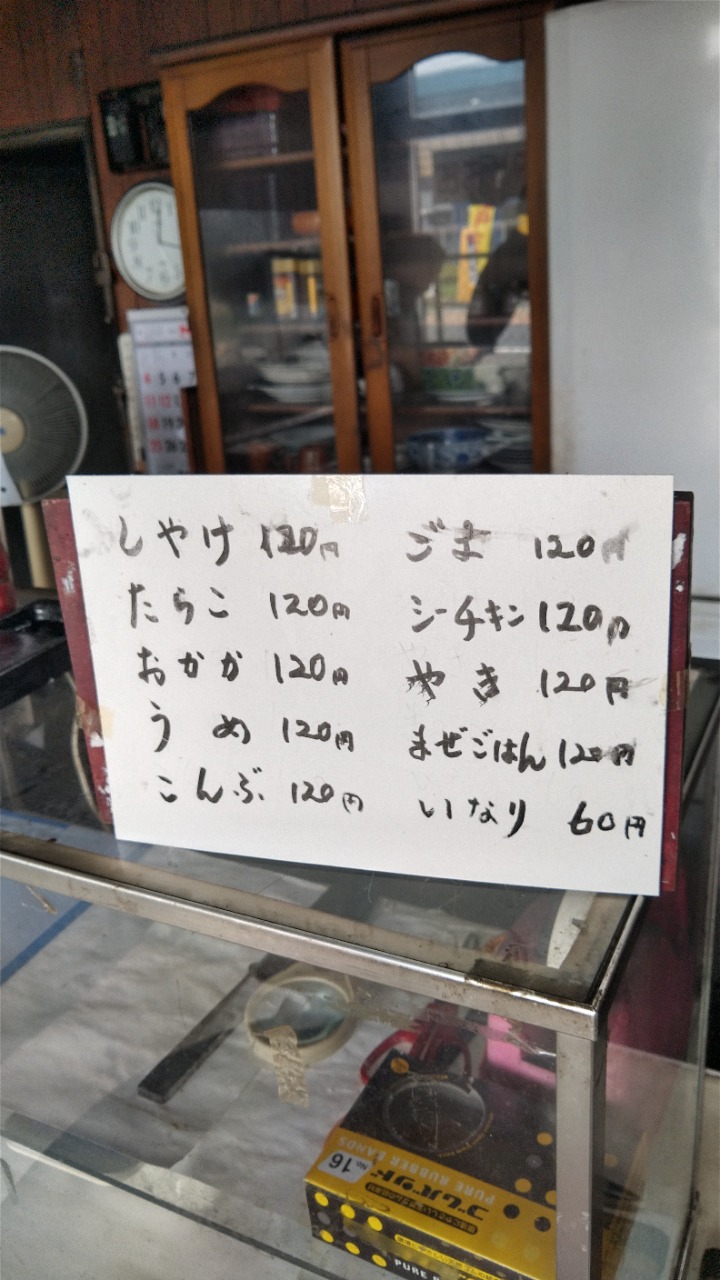 しゃけ 120円
たらこ 120円
おかか 120円
うめ 120円
こんぶ 120円
ごま 120円
シーチキン 120円
やき 120円
まぜごはん 120円
いなり 60円
No.16
ゴムバンド
PURE RUBBER BANDS